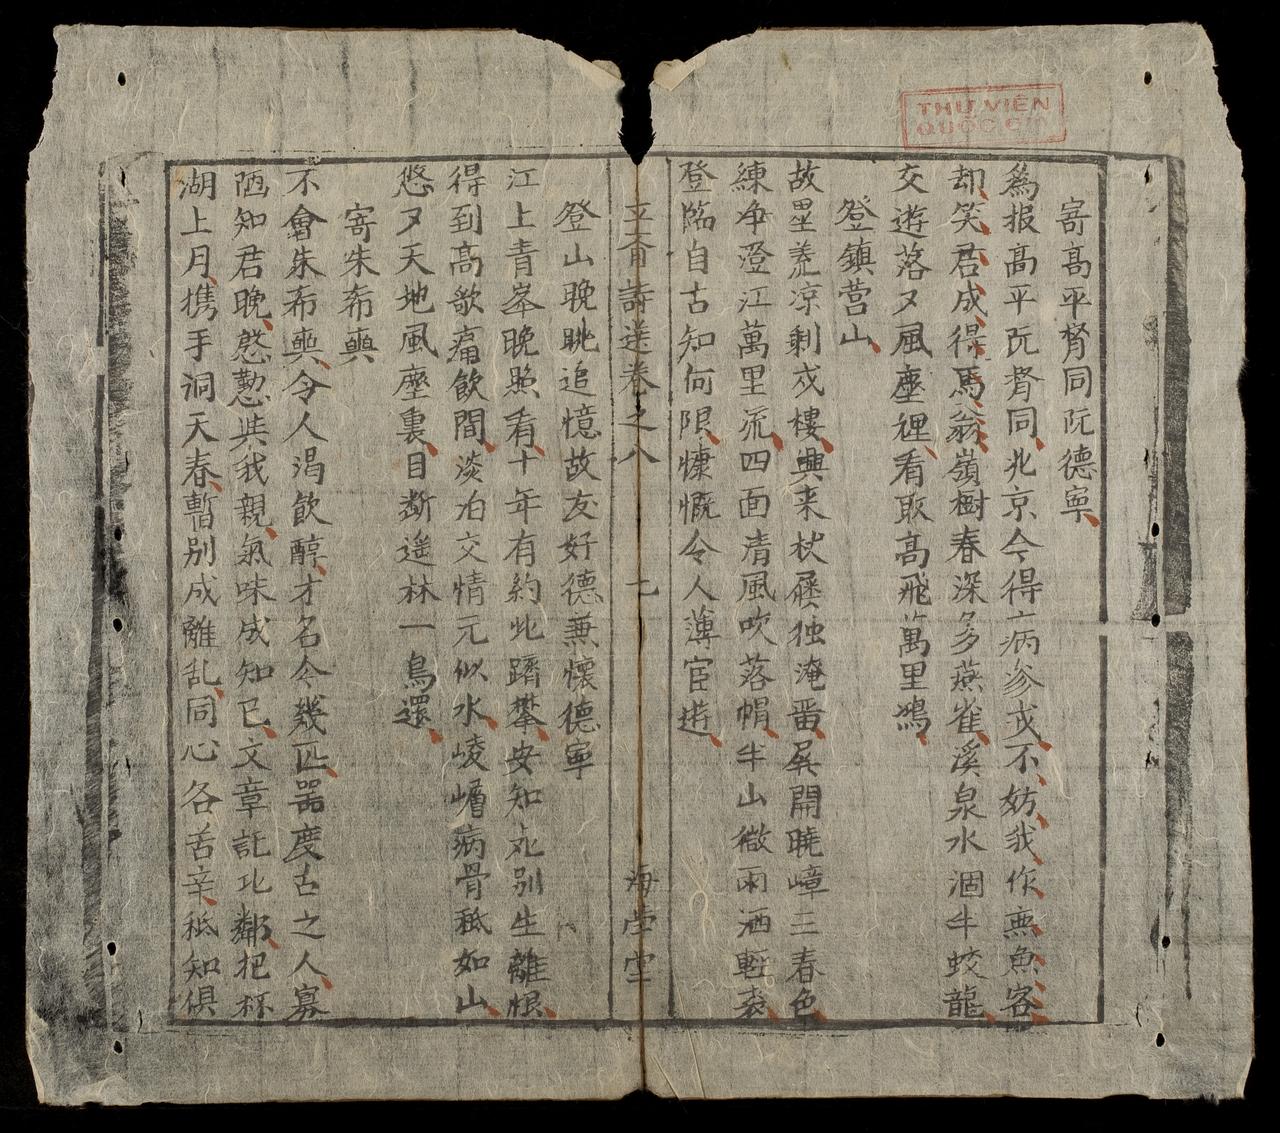 THƯ VIỆN
QUỐC GIA
寄高平督同阮德寧
為报高平阮督同北京今得亡病参戎不妨我作無魚客
却笑君成得馬翁嶺樹春深多燕雀溪泉水涸牛蛟龍
交遊落又風塵裡看取高飛萬里鴻
登鎮营山
故壘荒凉剩戍樓興来杖屐独淹畱屏開曉嶂三春色
練净澄江萬里流四面清風吹落帽半山微雨洒輕裘
登臨自古知何限慷慨令人薄宦遊
立斎詩选卷之八
七
海堂堂
登山晚眺追憶故友好德兼懷德寧
江上青峯晚照看十年有約此躋攀安知死别生離恨
得到高歌痛飲間淡泊交情元似水崚嶒病骨秪如山
悠又天地風塵裏目断遥林一鳥還
寄朱希奭
不會朱希奭令人渇飲醇才名今幾匹器度古之人寡
陋知君晚慇懃共我親氣味成知已文章託比鄰把杯
湖上月携手洞天春暫别成離乱同心各苦辛秪知俱